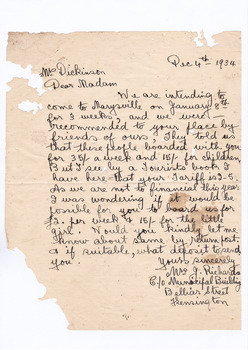 Dec 4th 1934
Mrs Dickinson
Dear Madam
We are intending to
come to Marysville on January 8th
for 3 weeks, and we were
recommended to your place by
friends of ours. They told us
that these people boarded with you
for 35/- a week and 15/- for children
But I see by a tourists book I
have here that your Tariff is 2-5.
As we are not to financial this year
I was wondering if it would be
possible for you to board us for
2. per week & 15/- for the little
girl. Would you kindly let me
know about same by return post
& if suitable, what deposit to send
you.
Yours sincerely
Mrs J. Richards
C/o Municipal Building
Street
Kensington